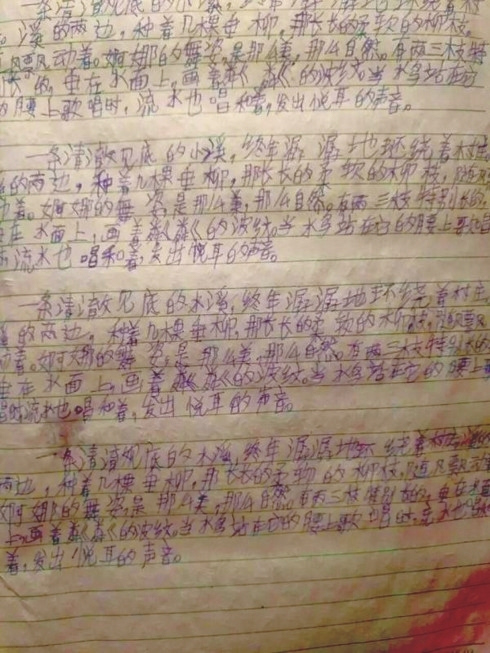 一条清澈见底的小溪,终年潺潺地环绕着村
溪的两边,种着几棵垂柳,那长长的柔软的柳枝,
风飘动着。婀娜的舞姿,是那么美,那么自然。有两三枝特
长的,垂在水面上,画着粼粼的波纹。当水鸟站在它
的腰上歌唱时,流水也唱和着,发出悦耳的声音。
一条清澈见底的小溪,终年潺潺地环绕着村庄。
的两边,种着几棵垂柳,那长长的柔软的柳枝,随风
动着。婀娜的舞姿,是那么美,那么自然。有两三枝特别长的,
垂在水面上,画着粼粼的波纹。当水鸟站在它的腰上歌唱
流水也唱和着,发出悦耳的声音。
一条清澈见底的水溪,终年潺潺地环绕着村庄。
的两边,种着几棵垂柳,那长长的柔软的柳枝,随风飘
动着。婀娜的舞姿,是那么美,那么自然。有两三枝特别长的
垂在水面上,画着粼粼的波纹。当水鸟站在它的腰上歌
唱时流水也唱和着,发出悦耳的声音。
一条清澈见底的水溪,终年潺潺地环绕着村庄。
两边,种着几棵垂柳,那长长的柔软的柳枝,随风飘动
婀娜的舞姿,是那么美,那么自然。有两三枝特别长的,垂在水面
上,画着粼粼的波纹。当水鸟站在它的腰上歌唱时,流水也唱和
着,发出悦耳的声音。